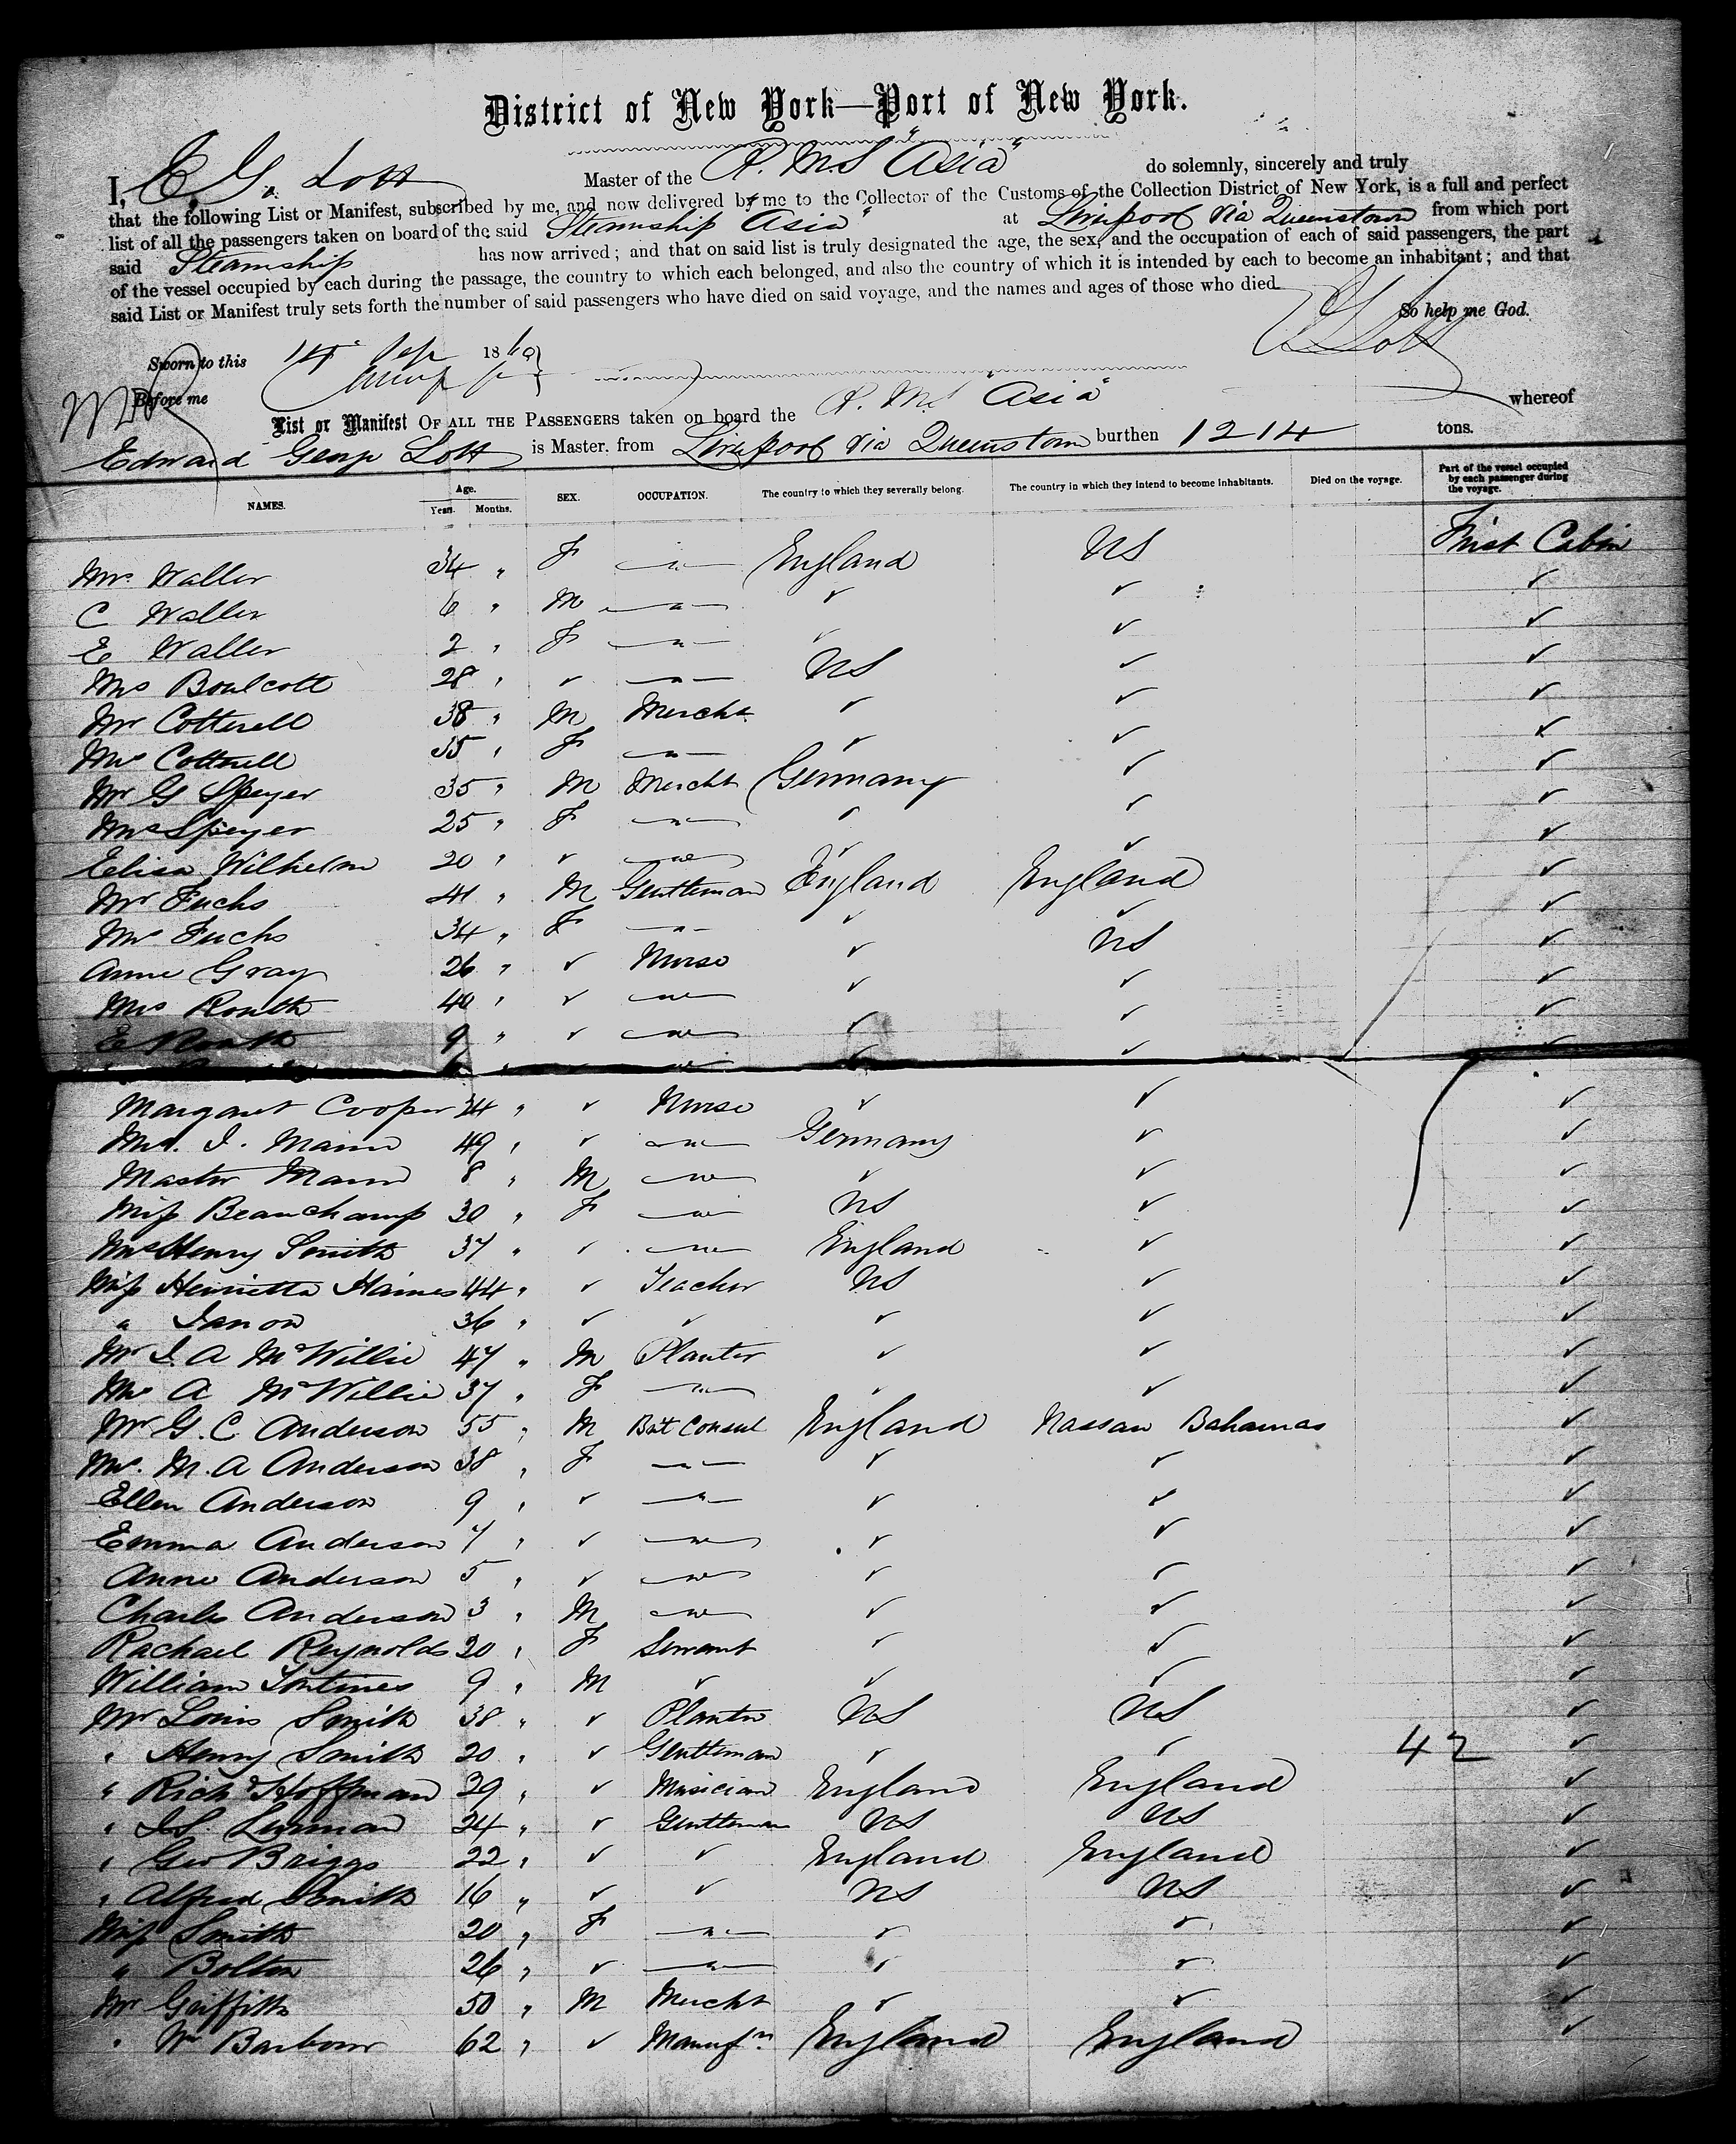 District of New York—Port of New York.
I, E. G. Lott Master of the R. M. S "Asia" do solemnly, sincerely and truly
that the following List or Manifest, subscribed by me, and now delivered by me to the Collector of the Customs of the Collection District of New York, is a full and perfect
list of all the passengers taken on board of the said Steamship Asia" at Liverpool via Queenstown from which port
said Steamship has now arrived; and that on said list is truly designated the age, the sex, and the occupation of each of said passengers, the part
of the vessel occupied by each during the passage, the country to which each belonged, and also the country of which it is intended by each to become an inhabitant; and that
said List or Manifest truly sets forth the number of said passengers who have died on said voyage, and the names and ages of those who died.
So help me God.
E G Lott
Sworn to this 14 Sep 1860
Before me
List or Manifest OF ALL THE PASSENGERS taken on board the R. M. S "Asia" whereof
Edward George Lott is Master, from Liverpool via Queenstown burthen 1214 tons.
NAMES. Age. Years. Months. SEX. OCCUPATION. The country to which they severally belong. The country in which they intend to become inhabitants. Died on the voyage. Part of the vessel occupied by each passenger during the voyage.
Mrs Waller 34 " F — " — England US First Cabin
C Waller 6 " M — " — ✓ ✓ ✓
E Waller 2 " F — " — ✓ ✓ ✓
Mrs Boulcott 28 " ✓ — " — US ✓ ✓
Mr Cotterell 38 " M Mercht ✓ ✓ ✓
Mrs Cotterell 35 " F — " — ✓ ✓ ✓
Mr G Speyer 35 " M Mercht Germany ✓ ✓
Mrs Speyer 25 " F — " — ✓ ✓ ✓
Elisa Wilhelm 20 " ✓ — " — ✓ ✓ ✓
Mr Fuchs 41 " M Gentleman England England ✓
Mrs Fuchs 34 " F — " — ✓ ✓ ✓
Anne Gray 26 " ✓ Nurse ✓ US ✓
Mrs Routh 40 " ✓ — " — ✓ ✓ ✓
E Routh 9 " ✓ — " — ✓ ✓ ✓
Margaret Cooper 24 " ✓ Nurse ✓ ✓ ✓
Mrs. I. Mann 49 " ✓ — " — Germany ✓ ✓
Master Mann 8 " M — " — ✓ ✓ ✓
Miss Beauchamp 30 " F — " — US ✓ ✓
Mrs Henry Smith 37 " ✓ — " — England ✓ ✓
Miss Henrietta Haines 44 " ✓ Teacher US ✓ ✓
" Janon 36 " ✓ ✓ ✓ ✓ ✓
Mr I. A McWillie 47 " M Planter ✓ ✓ ✓
Mrs A McWillie 37 " F — " — ✓ ✓ ✓
Mr G. C. Anderson 55 " M Brit Consul England Nassau Bahamas ✓
Mrs. M. A Anderson 38 " F — " — ✓ ✓ ✓
Ellen Anderson 9 " ✓ — " — ✓ ✓ ✓
Emma Anderson 7 " ✓ — " — ✓ ✓ ✓
Anne Anderson 5 " ✓ — " — ✓ ✓ ✓
Charles Anderson 3 " M — " — ✓ ✓ ✓
Rachael Reynolds 30 " F Servant ✓ ✓ ✓
William 9 " M ✓ ✓ ✓ ✓
Mr Louis Smith 38 " ✓ Planter US US ✓
" Henry Smith 20 " ✓ Gentleman ✓ ✓ 42 ✓
" Richd Hoffman 29 " ✓ Musician England England ✓
" I. S. Lurman 24 " ✓ Gentleman US US ✓
" Geo Briggs 22 " ✓ ✓ England England ✓
" Alfred Smith 16 " ✓ ✓ US US ✓
Miss Smith 20 " F — " — ✓ ✓ ✓
" Bolton 26 " ✓ — " — ✓ ✓ ✓
Mr Griffith 50 " M Mercht ✓ ✓ ✓
" Wm Barbour 62 " ✓ Manufr. England England ✓